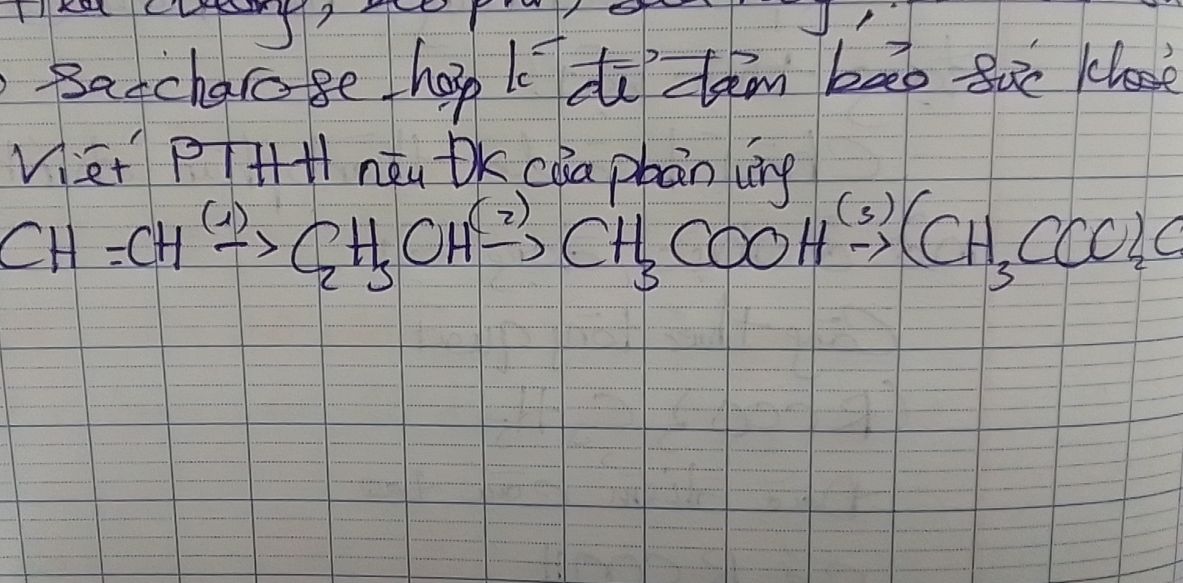 Saccharose hợp lí để đảm bảo sức khoẻ
Viết PTHH nêu ĐK của phản ứng
CH=CH (1)→ C₂H₅OH (2)→ CH₃COOH (3)→ (CH₃COO)₂C